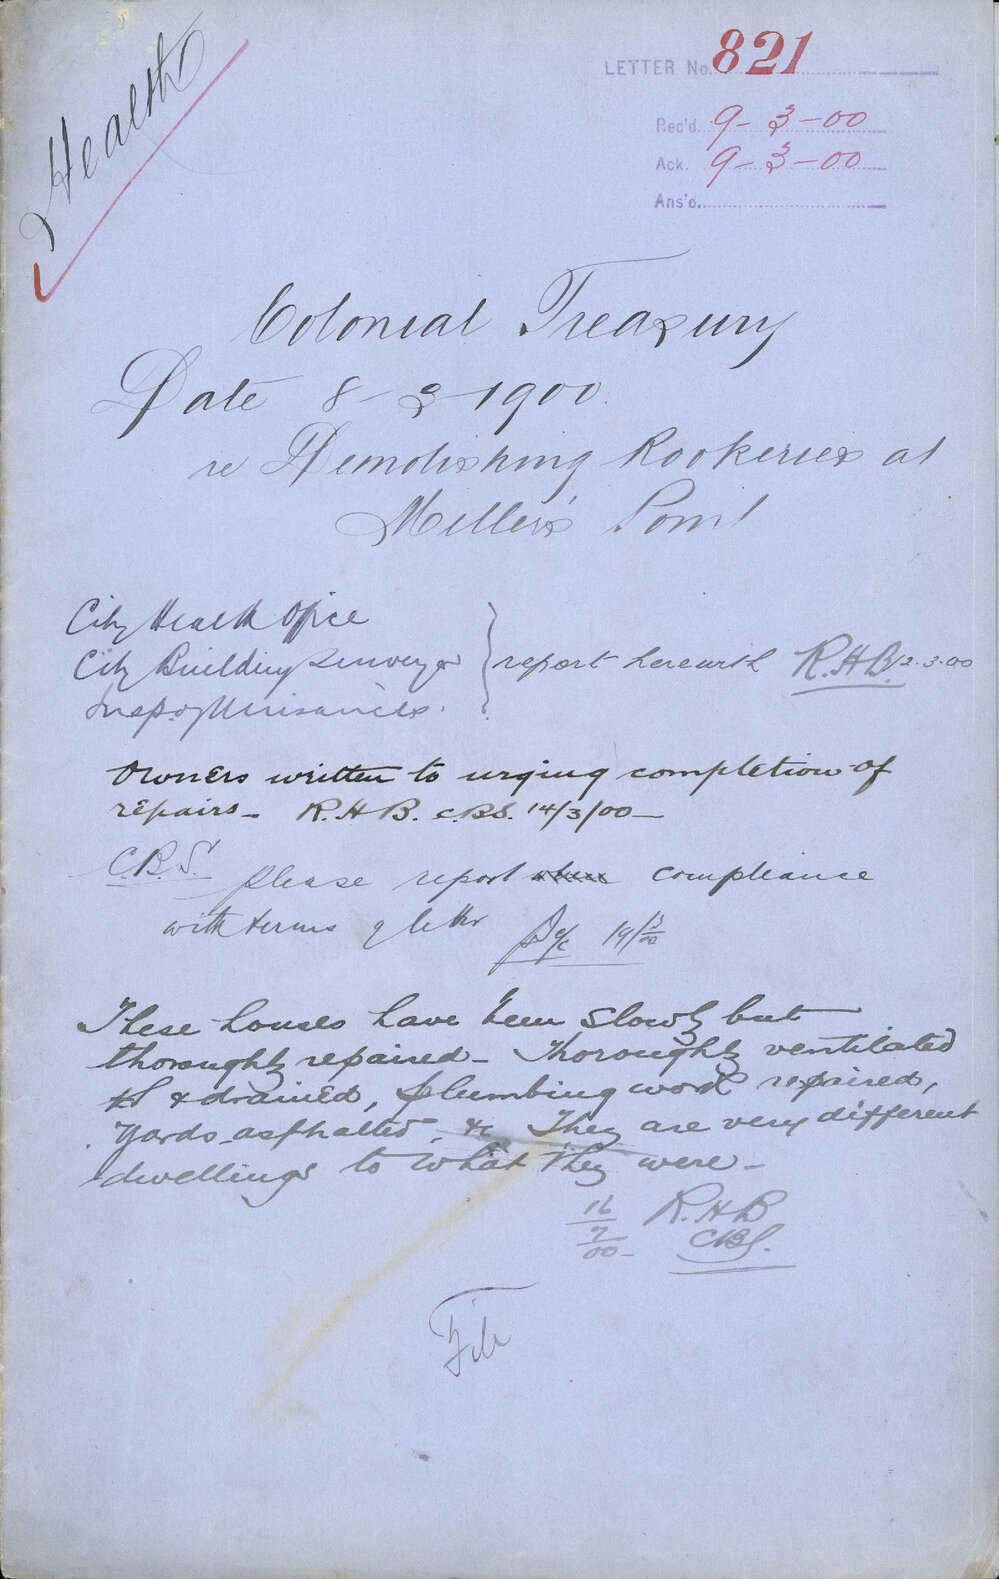 Health
LETTER No. 821
Rec'd. 9-3-00
Ack. 9-3-00
Ans'd.
Colonial Treasury
Date 8-3-1900.
re Demolishing Rookeries at
Miller's Point
City Health Office
City Building Surveyor } report herewith R.H.B. 12.3.00
Insp. of Nuisances.
Owners written to urging completion of
repairs - R.H.B. C.B.S. 14/3/00 -
C.B.S. please report where compliance
with terms of letter
These houses have been slowly but
thoroughly repaired - Thoroughly ventilated
& drained, plumbing work repaired,
Yards asphalted, &c They are very different
dwellings to what they were -
16/7/00 - R.H.B
CBS.
File